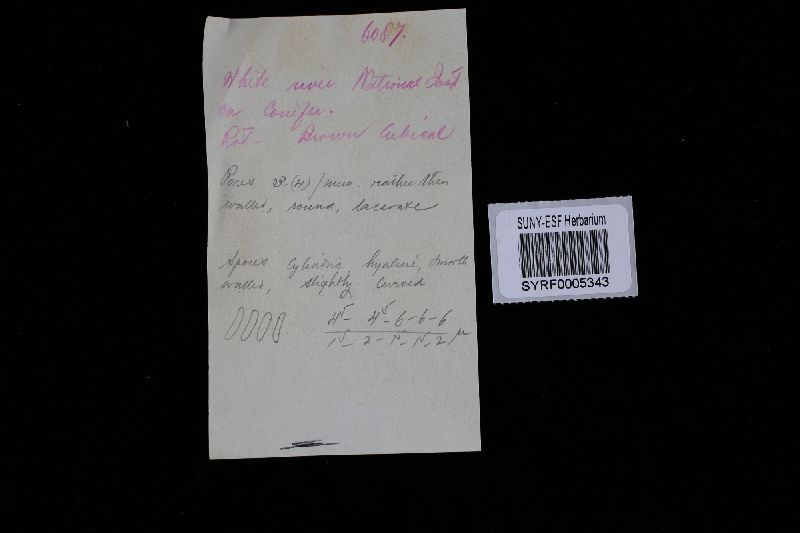 6087.
White river National Forest
on Conifer.
Rot - Brown Cubical
Pores 3-(4)/mm. rather thin
walled, round, lacerate
Spores Cylindric hyaline, smooth
walled, slightly curved
4⁵- 4⁵-6-6-6
1⁵- 2-1⁵-1⁵-2 μ
SUNY-ESF Herbarium
SYRF0005343